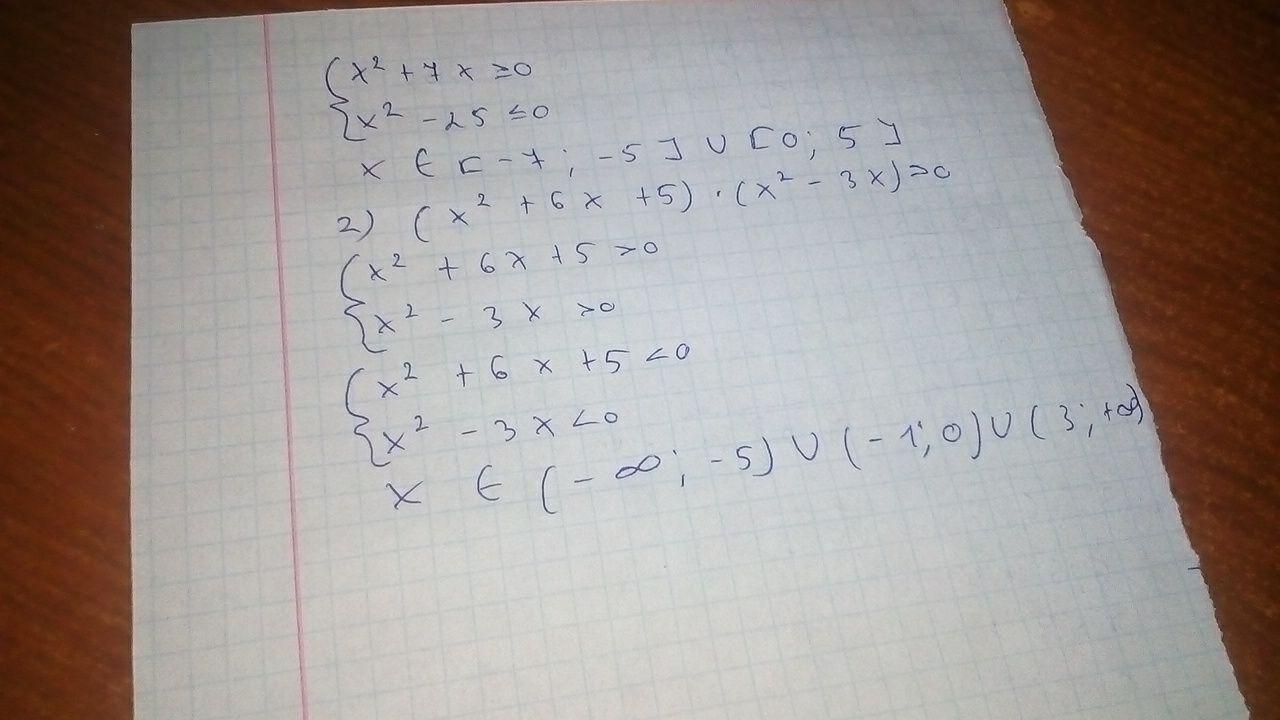 {x² + 7x ≥ 0
{x² - 25 ≤ 0
x ∈ [-7; -5] ∪ [0; 5]
2) (x² + 6x + 5) · (x² - 3x) > 0
{x² + 6x + 5 > 0
{x² - 3x > 0
{x² + 6x + 5 < 0
{x² - 3x < 0
x ∈ (-∞; -5) ∪ (-1; 0) ∪ (3; +∞)